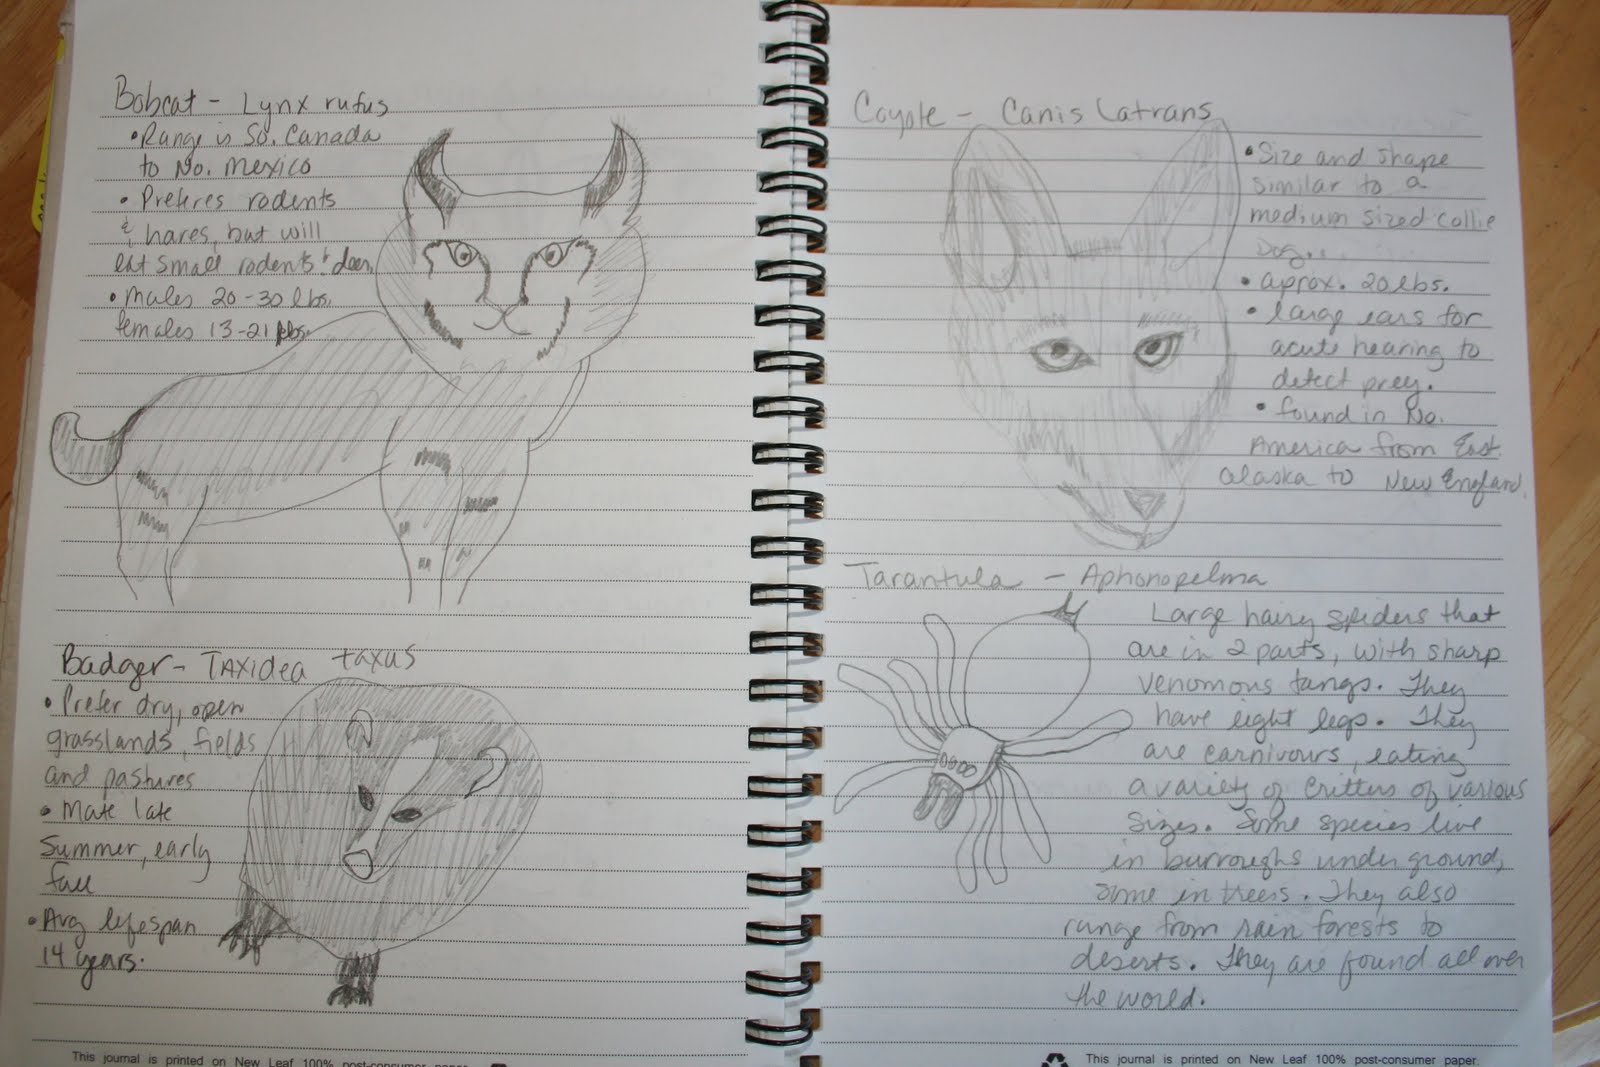 Bobcat - Lynx rufus
• Range is So. Canada
to No. Mexico
• Preferes rodents
& hares, but will
eat small rodents & deer.
• Males 20-30 lbs.
females 13-21 lbs.
Badger - Taxidea taxus
• Prefer dry, open
grasslands, fields
and pastures
• Mate late
Summer, early
fall
• Avg lifespan
14 years.
This journal is printed on New Leaf 100% post-consumer paper
Coyote - Canis Latrans
• Size and shape
similar to a
medium sized collie
Dog..
• aprox. 20 lbs.
• large ears for
acute hearing to
detect prey.
• found in No.
America from East.
Alaska to New England.
Tarantula - Aphonopelma
Large hairy spiders that
are in 2 parts, with sharp
venomous fangs. They
have eight legs. They
are carnivours, eating
a variety of critters of various
sizes. Some species live
in burroughs under ground,
some in trees. They also
range from rain forests to
deserts. They are found all over
the world.
This journal is printed on New Leaf 100% post-consumer paper.